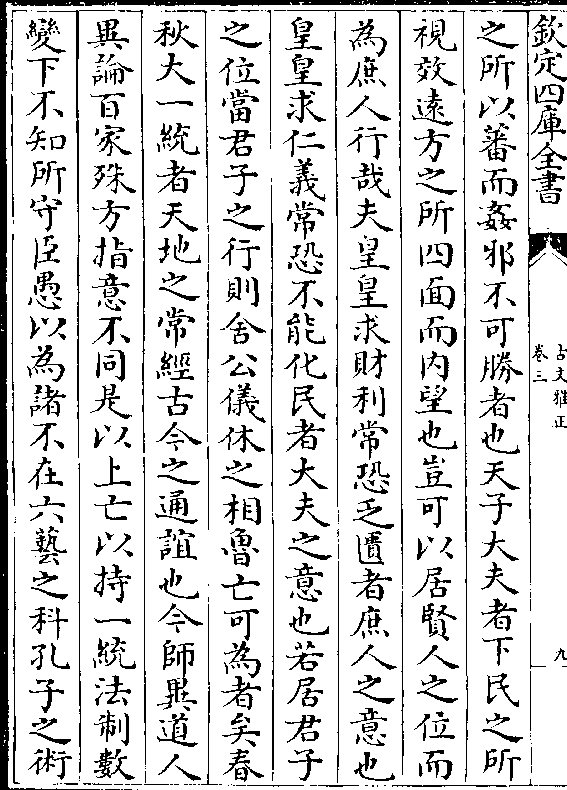 欽定四庫全書
古文雅正
卷三
九
之所以蕃而姦邪不可勝者也天子大夫者下民之所
視效遠方之所四面而内望也豈可以居賢人之位而
為庶人行哉夫皇皇求財利常恐乏匱者庶人之意也
皇皇求仁義常恐不能化民者大夫之意也若居君子
之位當君子之行則舍公儀休之相魯亡可為者矣春
秋大一統者天地之常經古今之通誼也今師異道人
異論百家殊方指意不同是以上亡以持一統法制數
變下不知所守臣愚以為諸不在六藝之科孔子之術